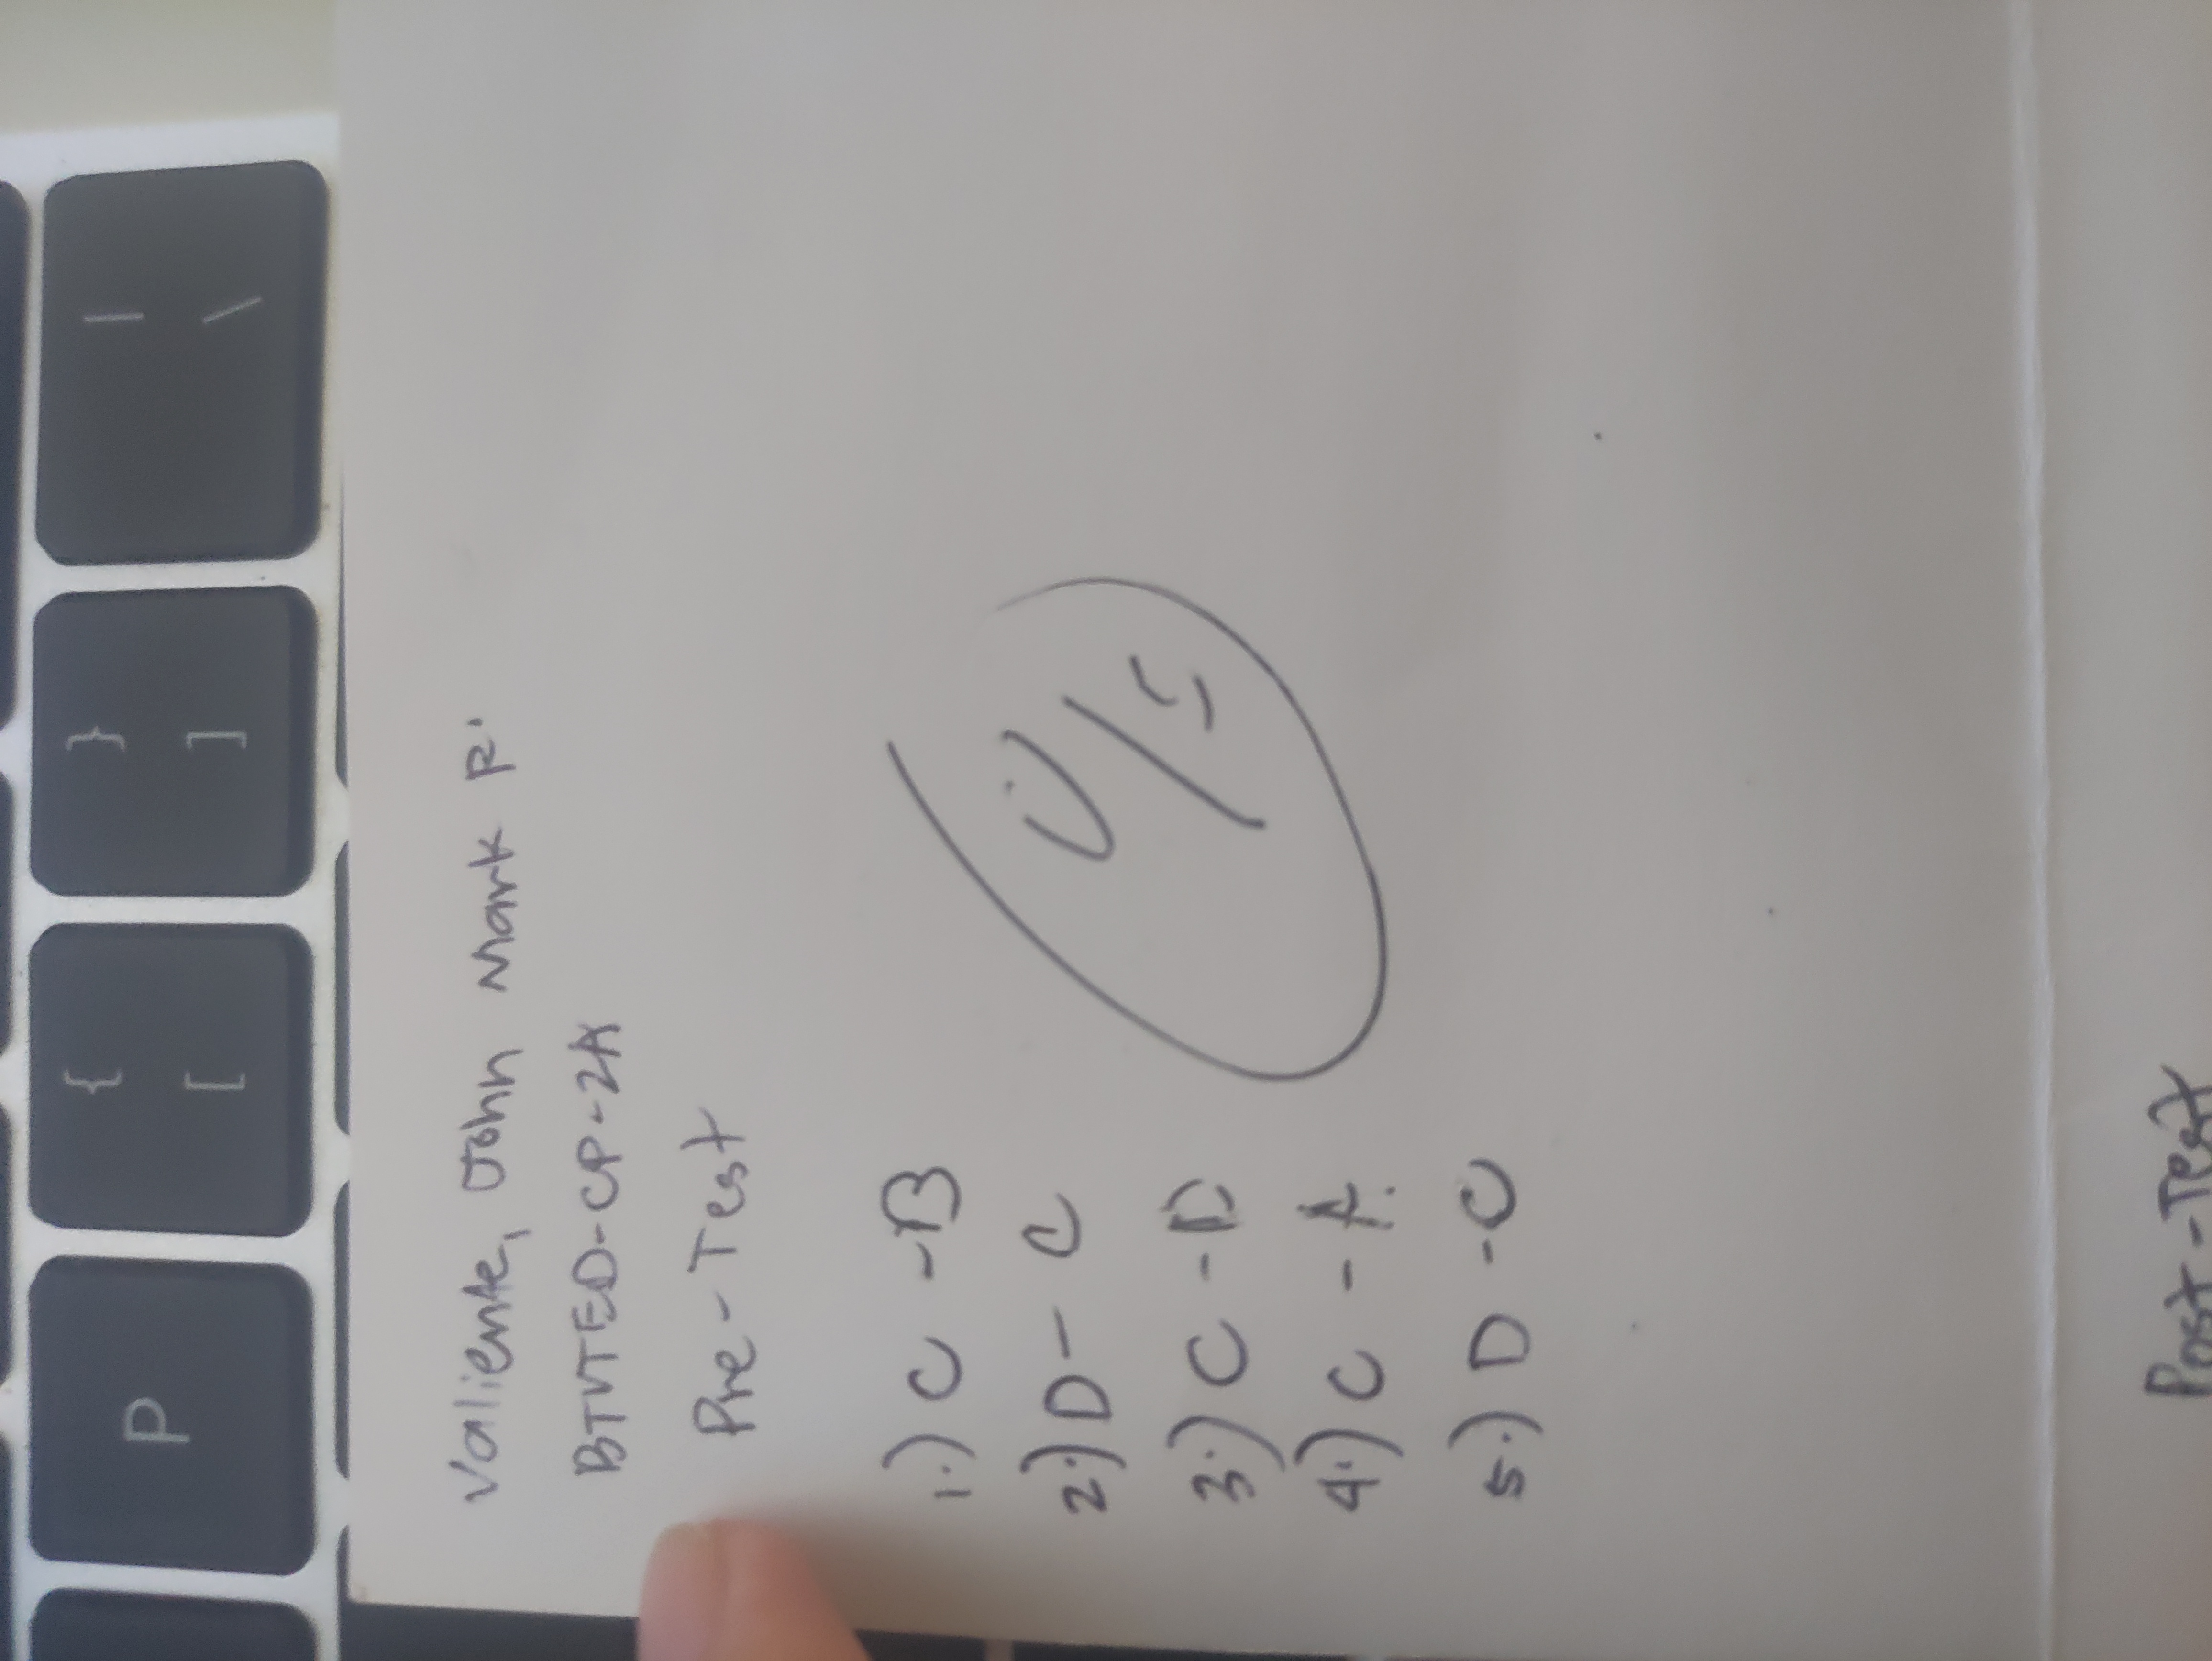 P
{
[
}
]
|
\
Valiente, John Mark R.
BTVTED-CP-2A
Pre-Test
1.) C - B
2.) D - C
3.) C - D
4.) C - A
5.) D - C
0/5
Post-Test